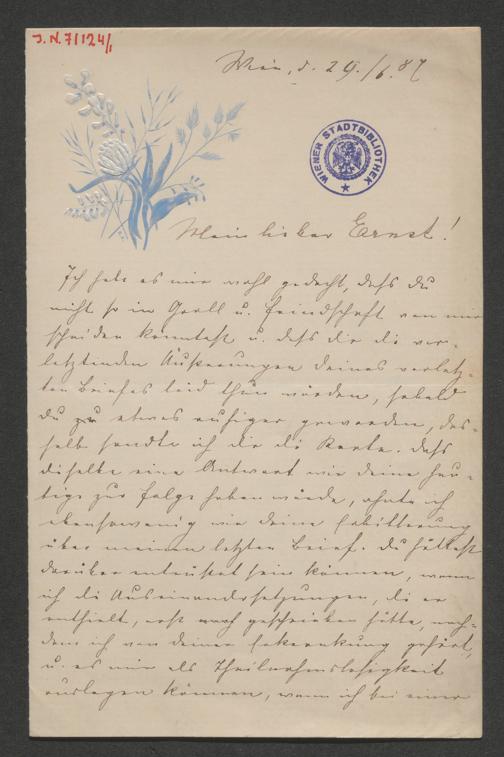 J.N. 71124/1
Wien, d. 29./6. 87
WIENER STADTBIBLIOTHEK
Mein lieber Ernst!
Ich habe es mir wohl gedacht, daß du
nicht so in Groll u. Feindschaft von mir
scheiden konntest u. daß dir die ver-
letztenden Äußerungen deines vorletz-
ten Briefes leid thun würden, sobald
du zu etwas ruhiger geworden, des-
halb sandte ich dir die Karte. Daß
dieselbe eine Antwort wie deine heu-
tige zur Folge haben würde, ahnte ich
ebensowenig wie deine Erbitterung
über meinen letzten Brief. Du hättest
darüber entrüstet sein können, wenn
ich die Auseinandersetzungen, die er
enthielt, erst noch geschrieben hätte, nach-
dem ich von deiner Erkrankung gehört,
u. es mir als Theilnahmslosigkeit
auslegen können, wenn ich bei einer